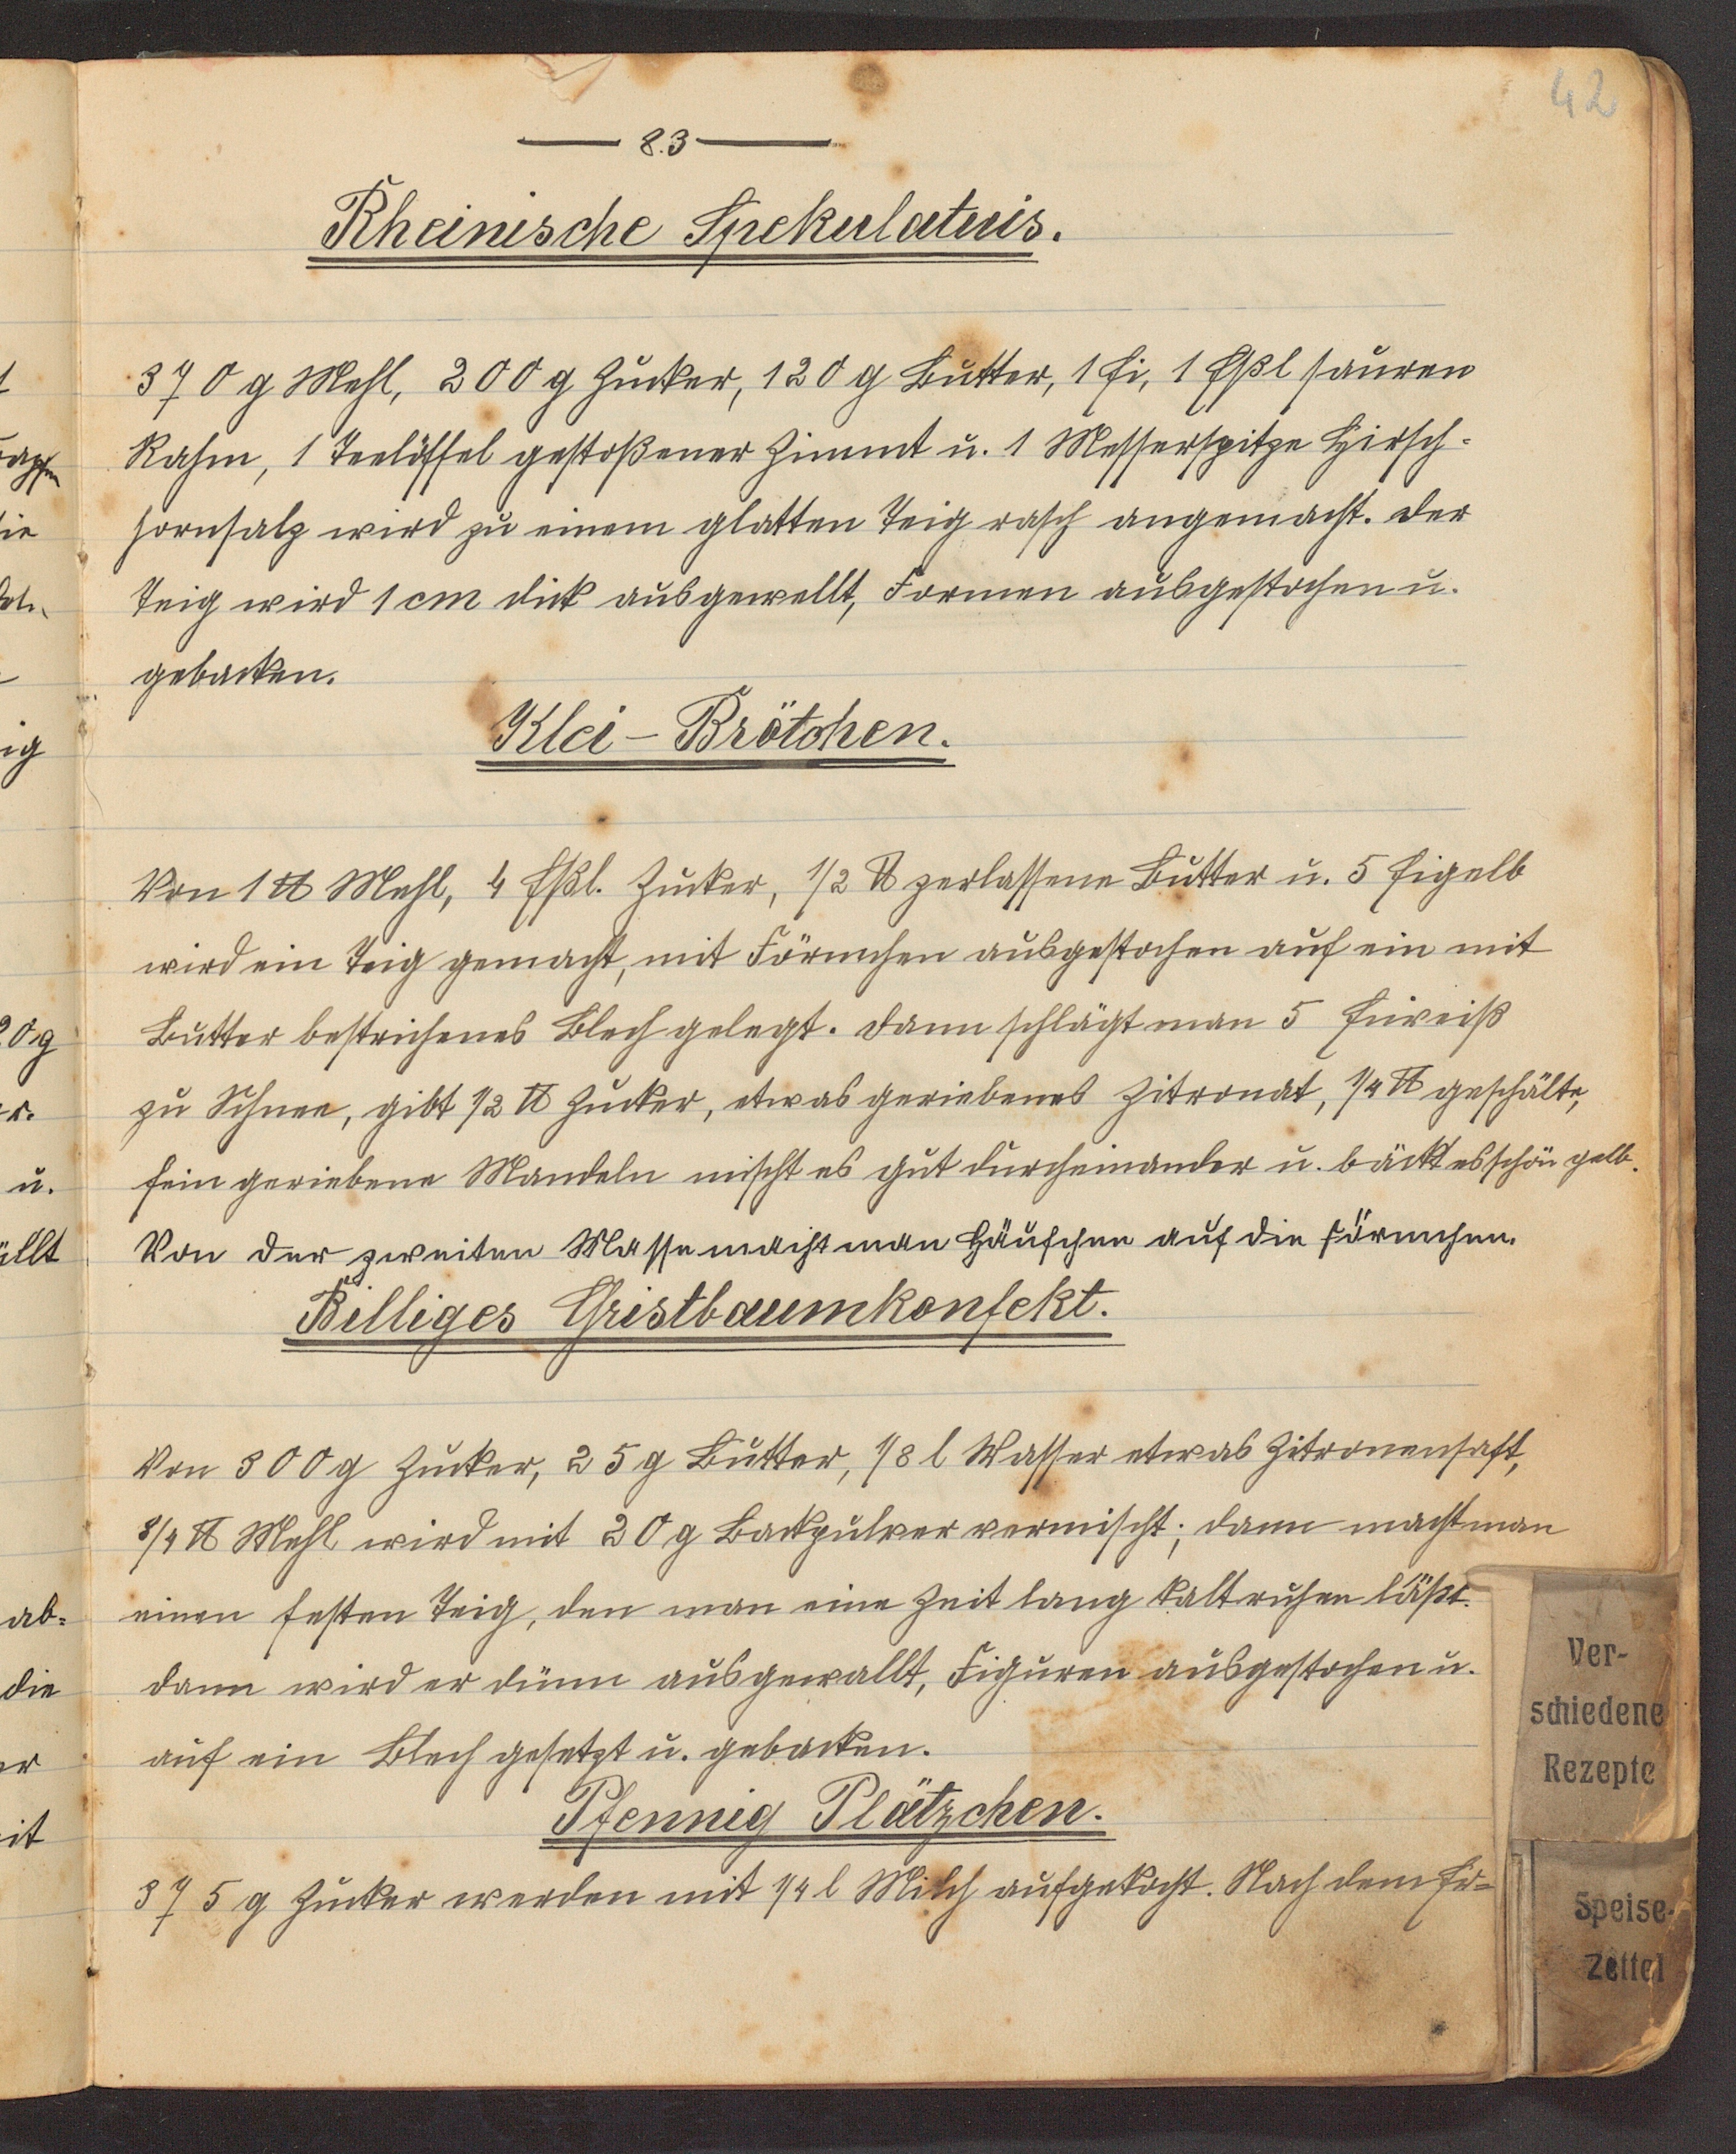 42
83
Rheinische Spekulatuis.
370 g Mehl, 200 g Zucker, 120 g Butter, 1 Ei, 1 Eßl sauren
Rahm, 1 Teelöffel gestoßener Zimmt u. 1 Messerspitze Hirsch-
hornsalz wird zu einem glatten Teig rasch angemacht. Der
Teig wird 1 cm dick ausgewellt, Formen ausgestochen u.
gebacken.
Klei-Brötchen.
Von 1 ℔ Mehl, 4 Eßl. Zucker, 1/2 ℔ zerlassene Butter u. 5 Eigelb
wird ein Teig gemacht, mit Förmchen ausgestochen auf ein mit
Butter bestrichenes Blech gelegt. Dann schlägt man 5 Eiweiß
zu Schnee, gibt 1/2 ℔ Zucker, etwas geriebenes Zitronat, 1/4 ℔ geschälte,
fein geriebene Mandeln mischt es gut durcheinander u. bäckt es schön gelb.
Von der zweiten Masse macht man Häufchen auf die Förmchen.
Billiges Christbaumkonfekt.
Von 300 g Zucker, 25 g Butter, 1/8 l Wasser etwas Zitronensaft,
3/4 ℔ Mehl wird mit 20 g Backpulver vermischt; dann macht man
einen festen Teig, den man eine Zeit lang kalt ruhen läßt.
dann wird er dünn ausgewallt, Figuren ausgestochen u.
auf ein Blech gesetzt u. gebacken.
Pfennig Plätzchen.
375 g Zucker werden mit 1/4 l Milch aufgekocht. Nach dem Er-
Ver-
schiedene
Rezepte
Speise-
Zettel
ie
ig
20 g
u.
üllt
ab-
die
er
it